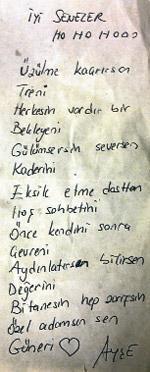 İYİ SENELER
HO HO HOOO
Üzülme kaçırırsan
Treni
Herkesin vardır bir
Bekleyeni
Gülümsersin seversen
Kaderini
Eksik etme dosttan
Hoş sohbetini
Önce kendini sonra
Çevreni
Aydınlatırsan bilirsen
Değerini
Bitanesin hep
Özel adamsın sen
Güneri ♡ AYŞE